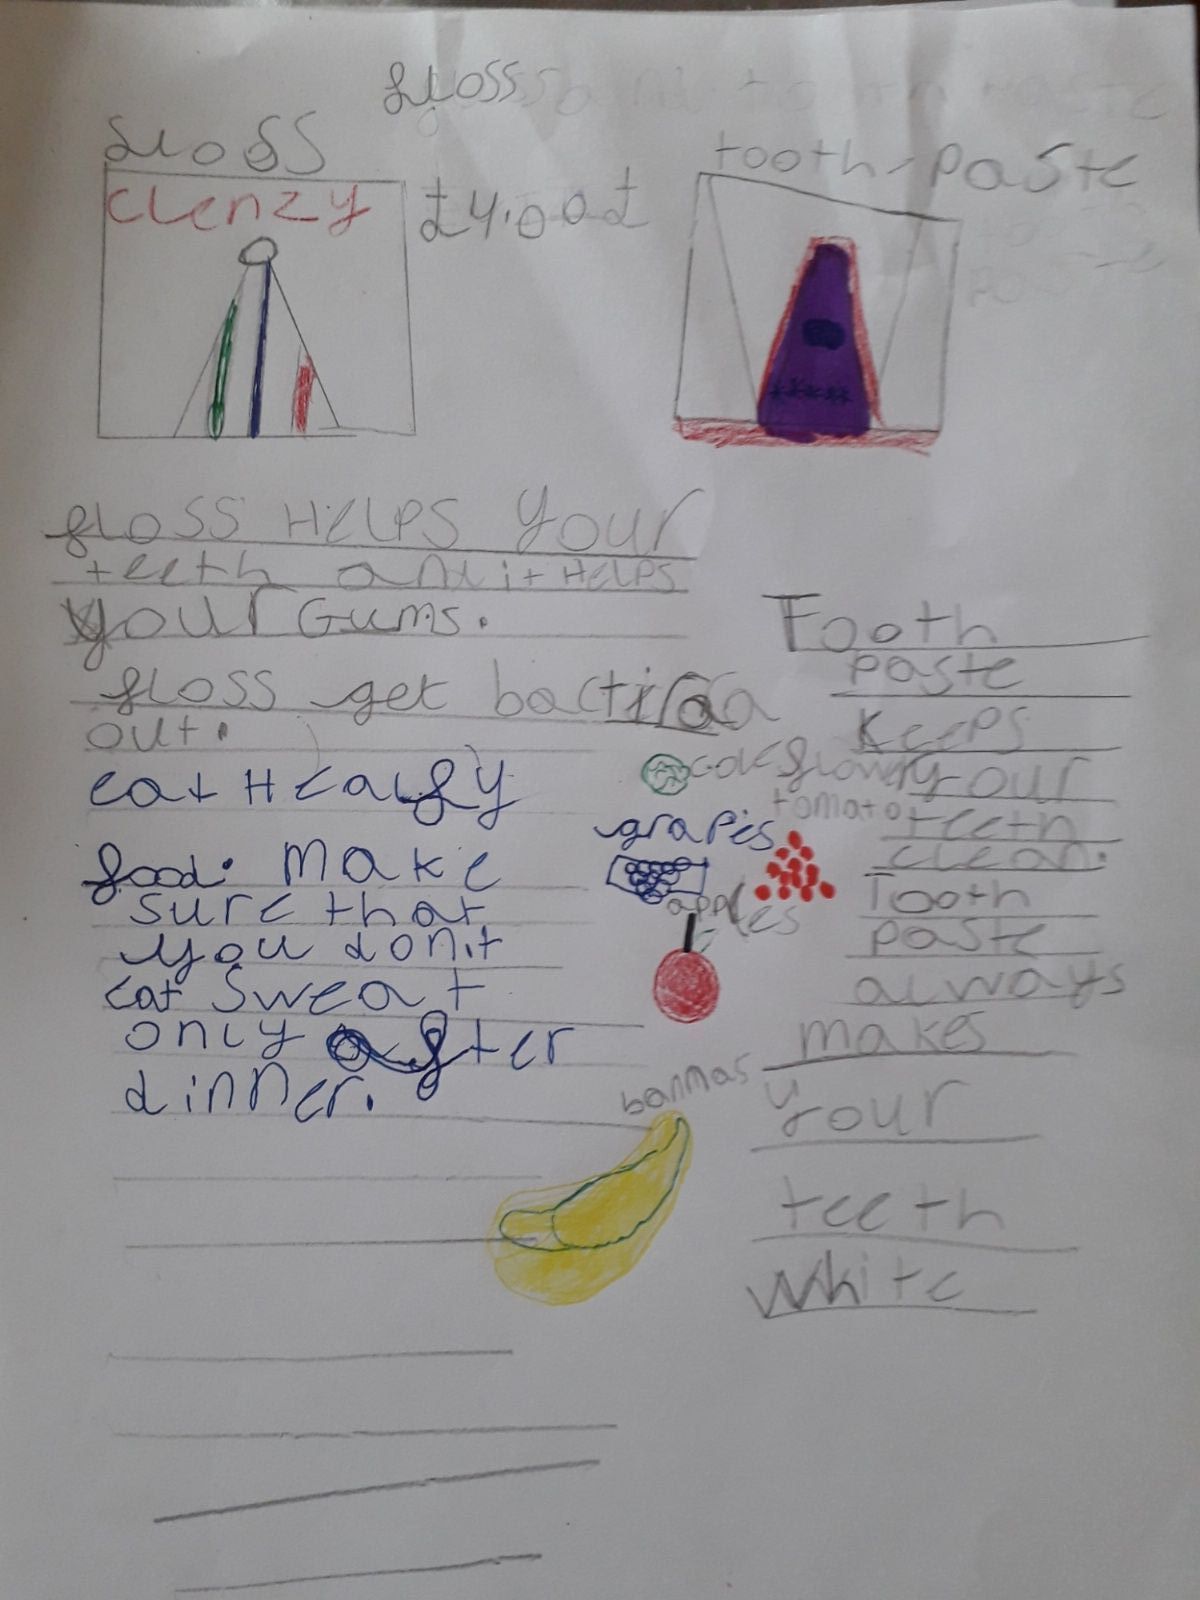 floss
floss
clenzy
£4.00£
tooth-paste
floss HELPS your
teeth and it HELPS
your Gums.
floss get bactiraa
out.
eat Healfy
food. Make
sure that
you don.t
eat sweat
only after
dinner.
grapes
tomato
apples
banmas
Tooth
paste
Keeps
your
teeth
clean.
Tooth
paste
always
makes
your
teeth
white